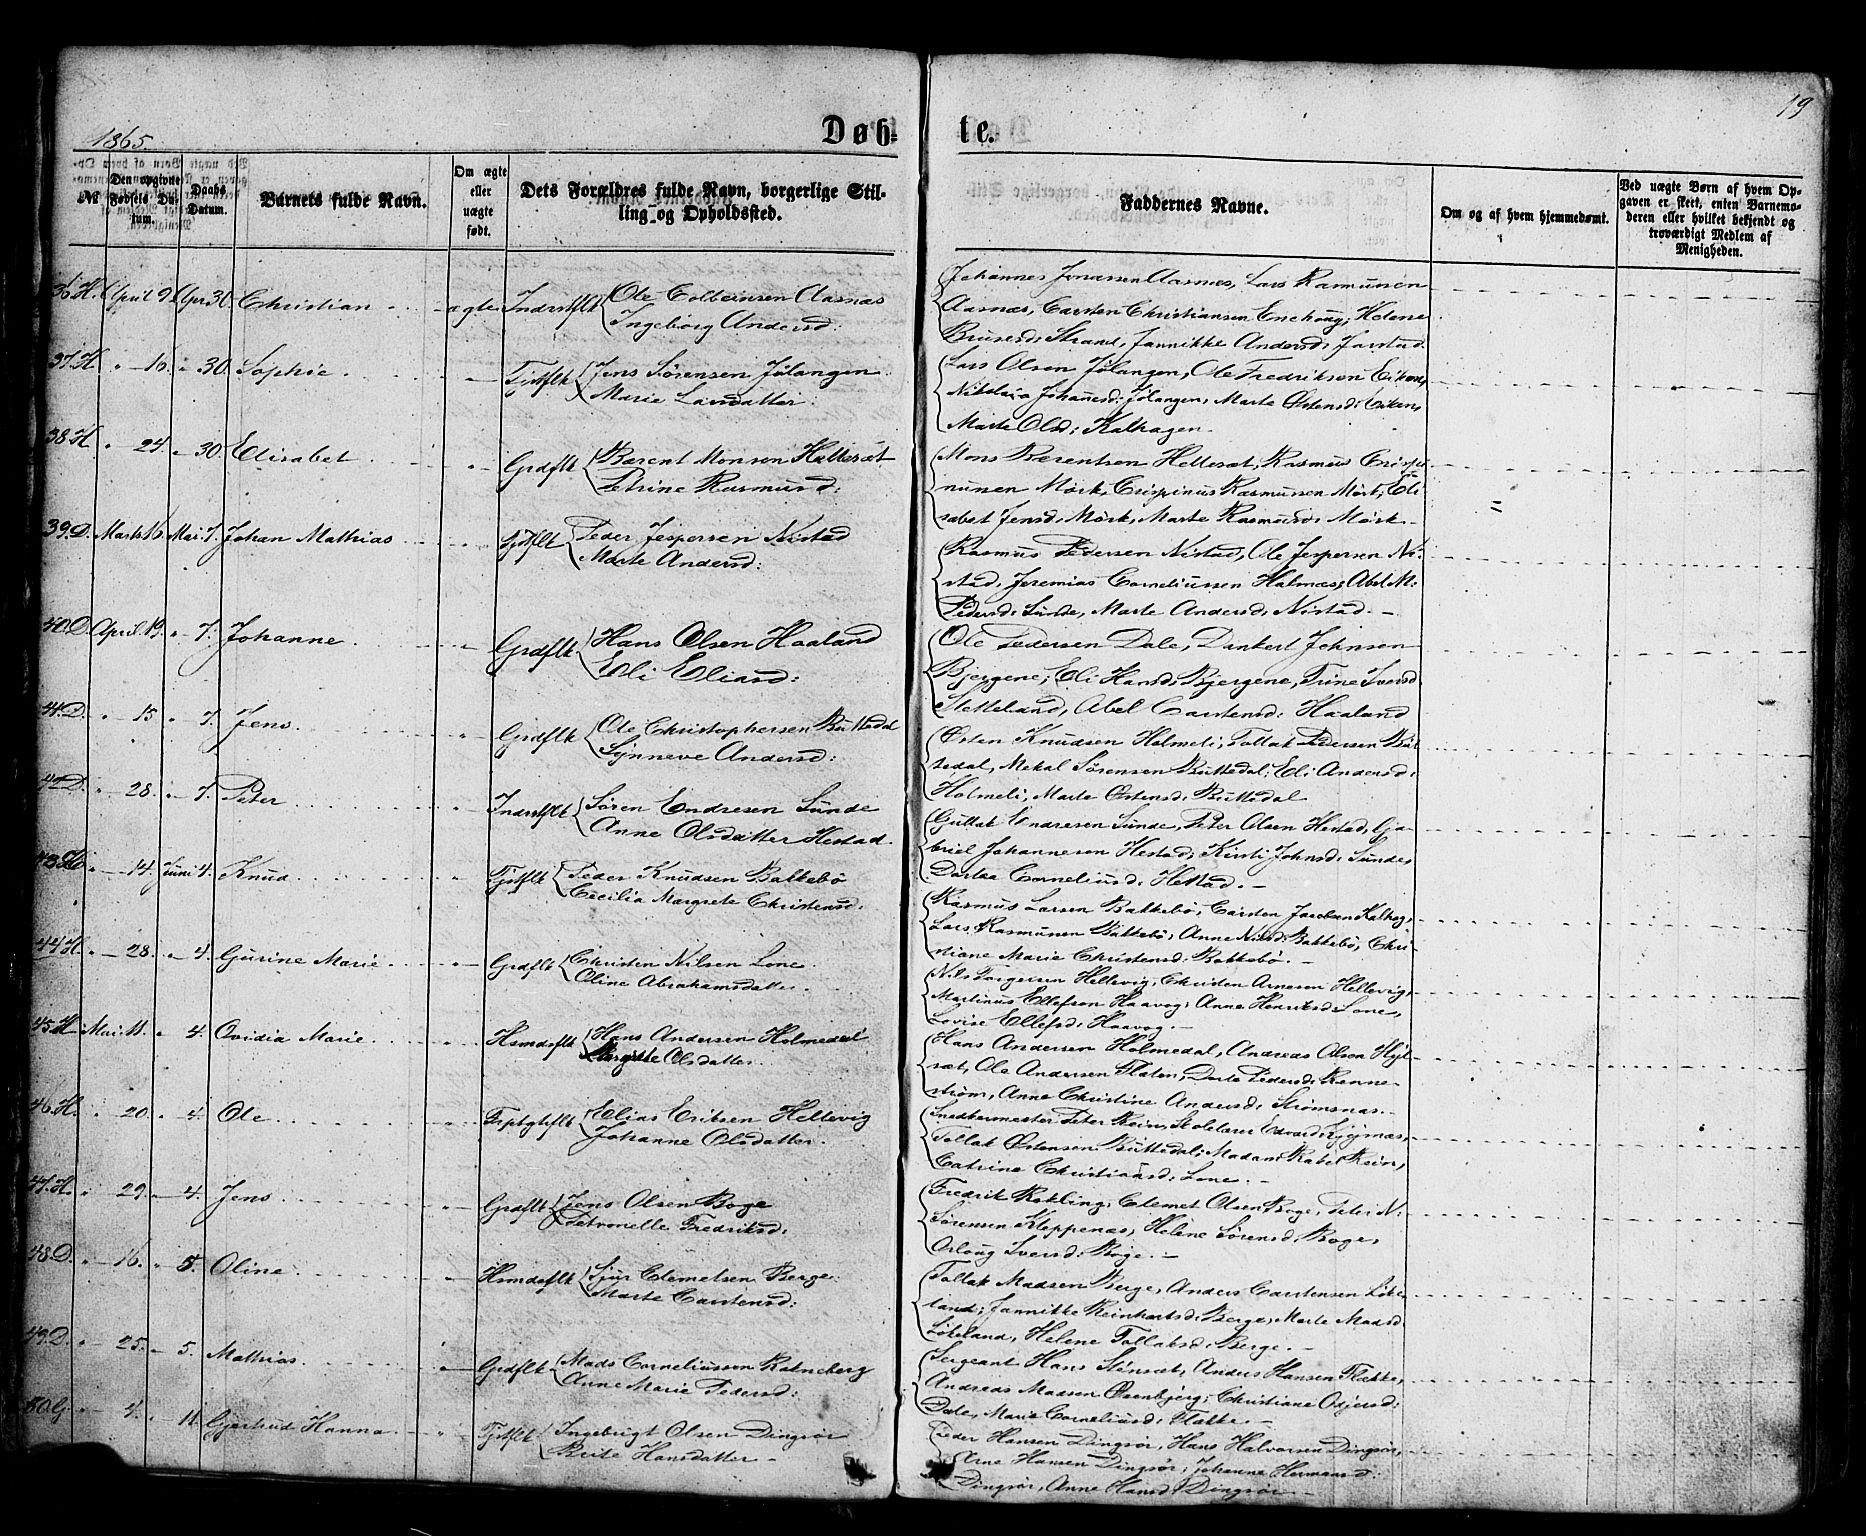 1865.
Døb-
te.
19
№
Den opgivne Fødsels Datum.
Daabs Datum.
Barnets fulde Navn.
Om ægte eller uægte født.
Dets Forældres fulde Navn, borgerlige Stilling og Opholdssted.
Faddernes Navne.
Om og af hvem hjemmedøbt.
Ved uægte Børn af hvem Opgaven er skeet, enten Barnemoderen eller hvilket bekjendt og troværdigt Medlem af Menigheden.
36 H. April 9. Apr 30. Christian ægte Indrstflk Ole Colbeinsen Aasnæs
Ingeborg Andersd:
Johannes Jonassen Aasnæs, Lars Rasmussen
Aasnæs, Carsten Christiansen Enehoug, Helene
Brusesd: Strand, Jannikke Andersd: Jarstad
37 H " 16. " 30. Sophie " Tjstflk Jens Sørensen Jølangen
Marie Larsdatter.
Lars Olsen Jølangen, Ole Fredriksen Eiken,
Nikolaia Johannesd: Jølangen, Marte Østensd: Eiken,
Marte Olsd: Kalhagen.
38 H " 24 " 30. Elisabet " Grdflk Bærent Monsen Hellesæt
Petrine Rasmusd:
Mons Bærentsen Hellesæt, Rasmus Crispi-
nusen Mørk, Crispinus Rasmussen Mørk, Eli
sabet Jensd: Mørk, Marte Rasmusd: Mørk.
39. D. Marts 16 Mai 7. Johan Mathias " Tjstflk Peder Jespersen Nistad
Marte Andersd:
Rasmus Pedersen Nistad, Ole Jespersen Ni-
stad, Jeremias Corneliussen Halmes, Abel M.
Pedersd: Sunde, Marte Andersd: Nistad.
40. D. April 19. " 7. Johanne " Grdflk Hans Olsen Haaland
Eli Eliasd:
Ole Pedersen Dale, Dankert Johnsen
Bjergene, Eli Hansd: Bjergene, Trine Iversd
Stetteland, Abel Carstensd: Haaland
41. D. " 15 " 7. Jens " Grdflk Ole Christophersen Buttedal
Synneve Andersd:
Østen Knudsen Holmeli, Tollak Pedersen But-
tedal, Mekal Sørensen Buttedal, Eli Andersd:
Holmeli, Marte Østensd: Buttedal
42 D. " 28. " 7. Peter " Indrstflk Søren Endresen Sunde
Anne Olsdatter Hestad.
Gullak Endresen Sunde, Peter Olsen Hestad, Ga-
briel Johannesen Hestad, Kirsti Johnsd: Sunde,
Dortea Corneliusd: Hestad.
43 H. " 14. Juni 4. Knud " Tjstflk Peder Knudsen Bakkebø
Cecilia Margrete Christensd:
Rasmus Larsen Bakkebø, Carsten Jacobsen Kalhag,
Lars Rasmusen Bakkebø, Anne Nilsd: Bakkebø, Chri-
stiane Marie Christensd: Bakkebø.
44 H " 28. " 4. Gurine Marie " Grdflk Christen Nilsen Lone
Oline Abrahamsdatter.
Nils Torgersen Hellevig, Christen Arnesen Hellevig,
Martinus Ellefsen Haavog, Anne Henriksd: Lone,
Lovise Ellefsd: Haavog.
45. H Mai 11. " 4. Ovidia Marie " Hsmdsflk Hans Andersen Holmedal
Margitte Olsdatter.
Hans Andersen Holmedal, Andreas Olsen Hyl-
sæt, Ole Andersen Flaten, Dorte Pedersd: Renne-
strøm, Anne Christine Andersd: Strømsnæs.
46. H. " 20. " 4. Ole " Elias Eriksen Hellevig
Johanne Olsdatter.
Snedkermester Peter Rein, Skolelærer Edvard
Tollak Østensen Buttedal, Madam Rabel Rein,
Catrine Christiansd: Lone.
47. H. " 29. " 4. Jens " Grdflk Jens Olsen Boge
Petronelle Fredriksd:
Fredrik Røkling, Clemet Olsen Boge, Peter N.
Sørensen Kleppenæs, Helene Sørensd: Boge,
Orloug Iversd: Boge.
48 D. " 16. " 5. Oline " Hsmdsflk Sjur Clemetsen Berge
Marte Carstensd:
Tollak Madsen Berge, Anders Carstensen Løke-
land, Jannikke Reinhartsd: Berge, Marte Madsd
Løkeland, Helene Tollaksd: Berge.
49. D. " 25. " 5. Mathias " Grdflk Mads Corneliussen Ratneberg
Anne Marie Pedersd:
Sergeant Hans Stensæt, Anders Hansen Flække,
Andreas Madsen Osenbjerg, Christiane
Dale, Marie Corneliusd: Flække.
50 G. " 4. " 11. Gjertrud Hanna " Tjstflk Ingebrigt Olsen Dingsør
Brite Hansdatter
Peder Hansen Dingsør, Hans Halvorsen Dingsør,
Arne Hansen Dingsør, Johanne Hermansd:
Dingsør, Anne Hansd: Dingsør.